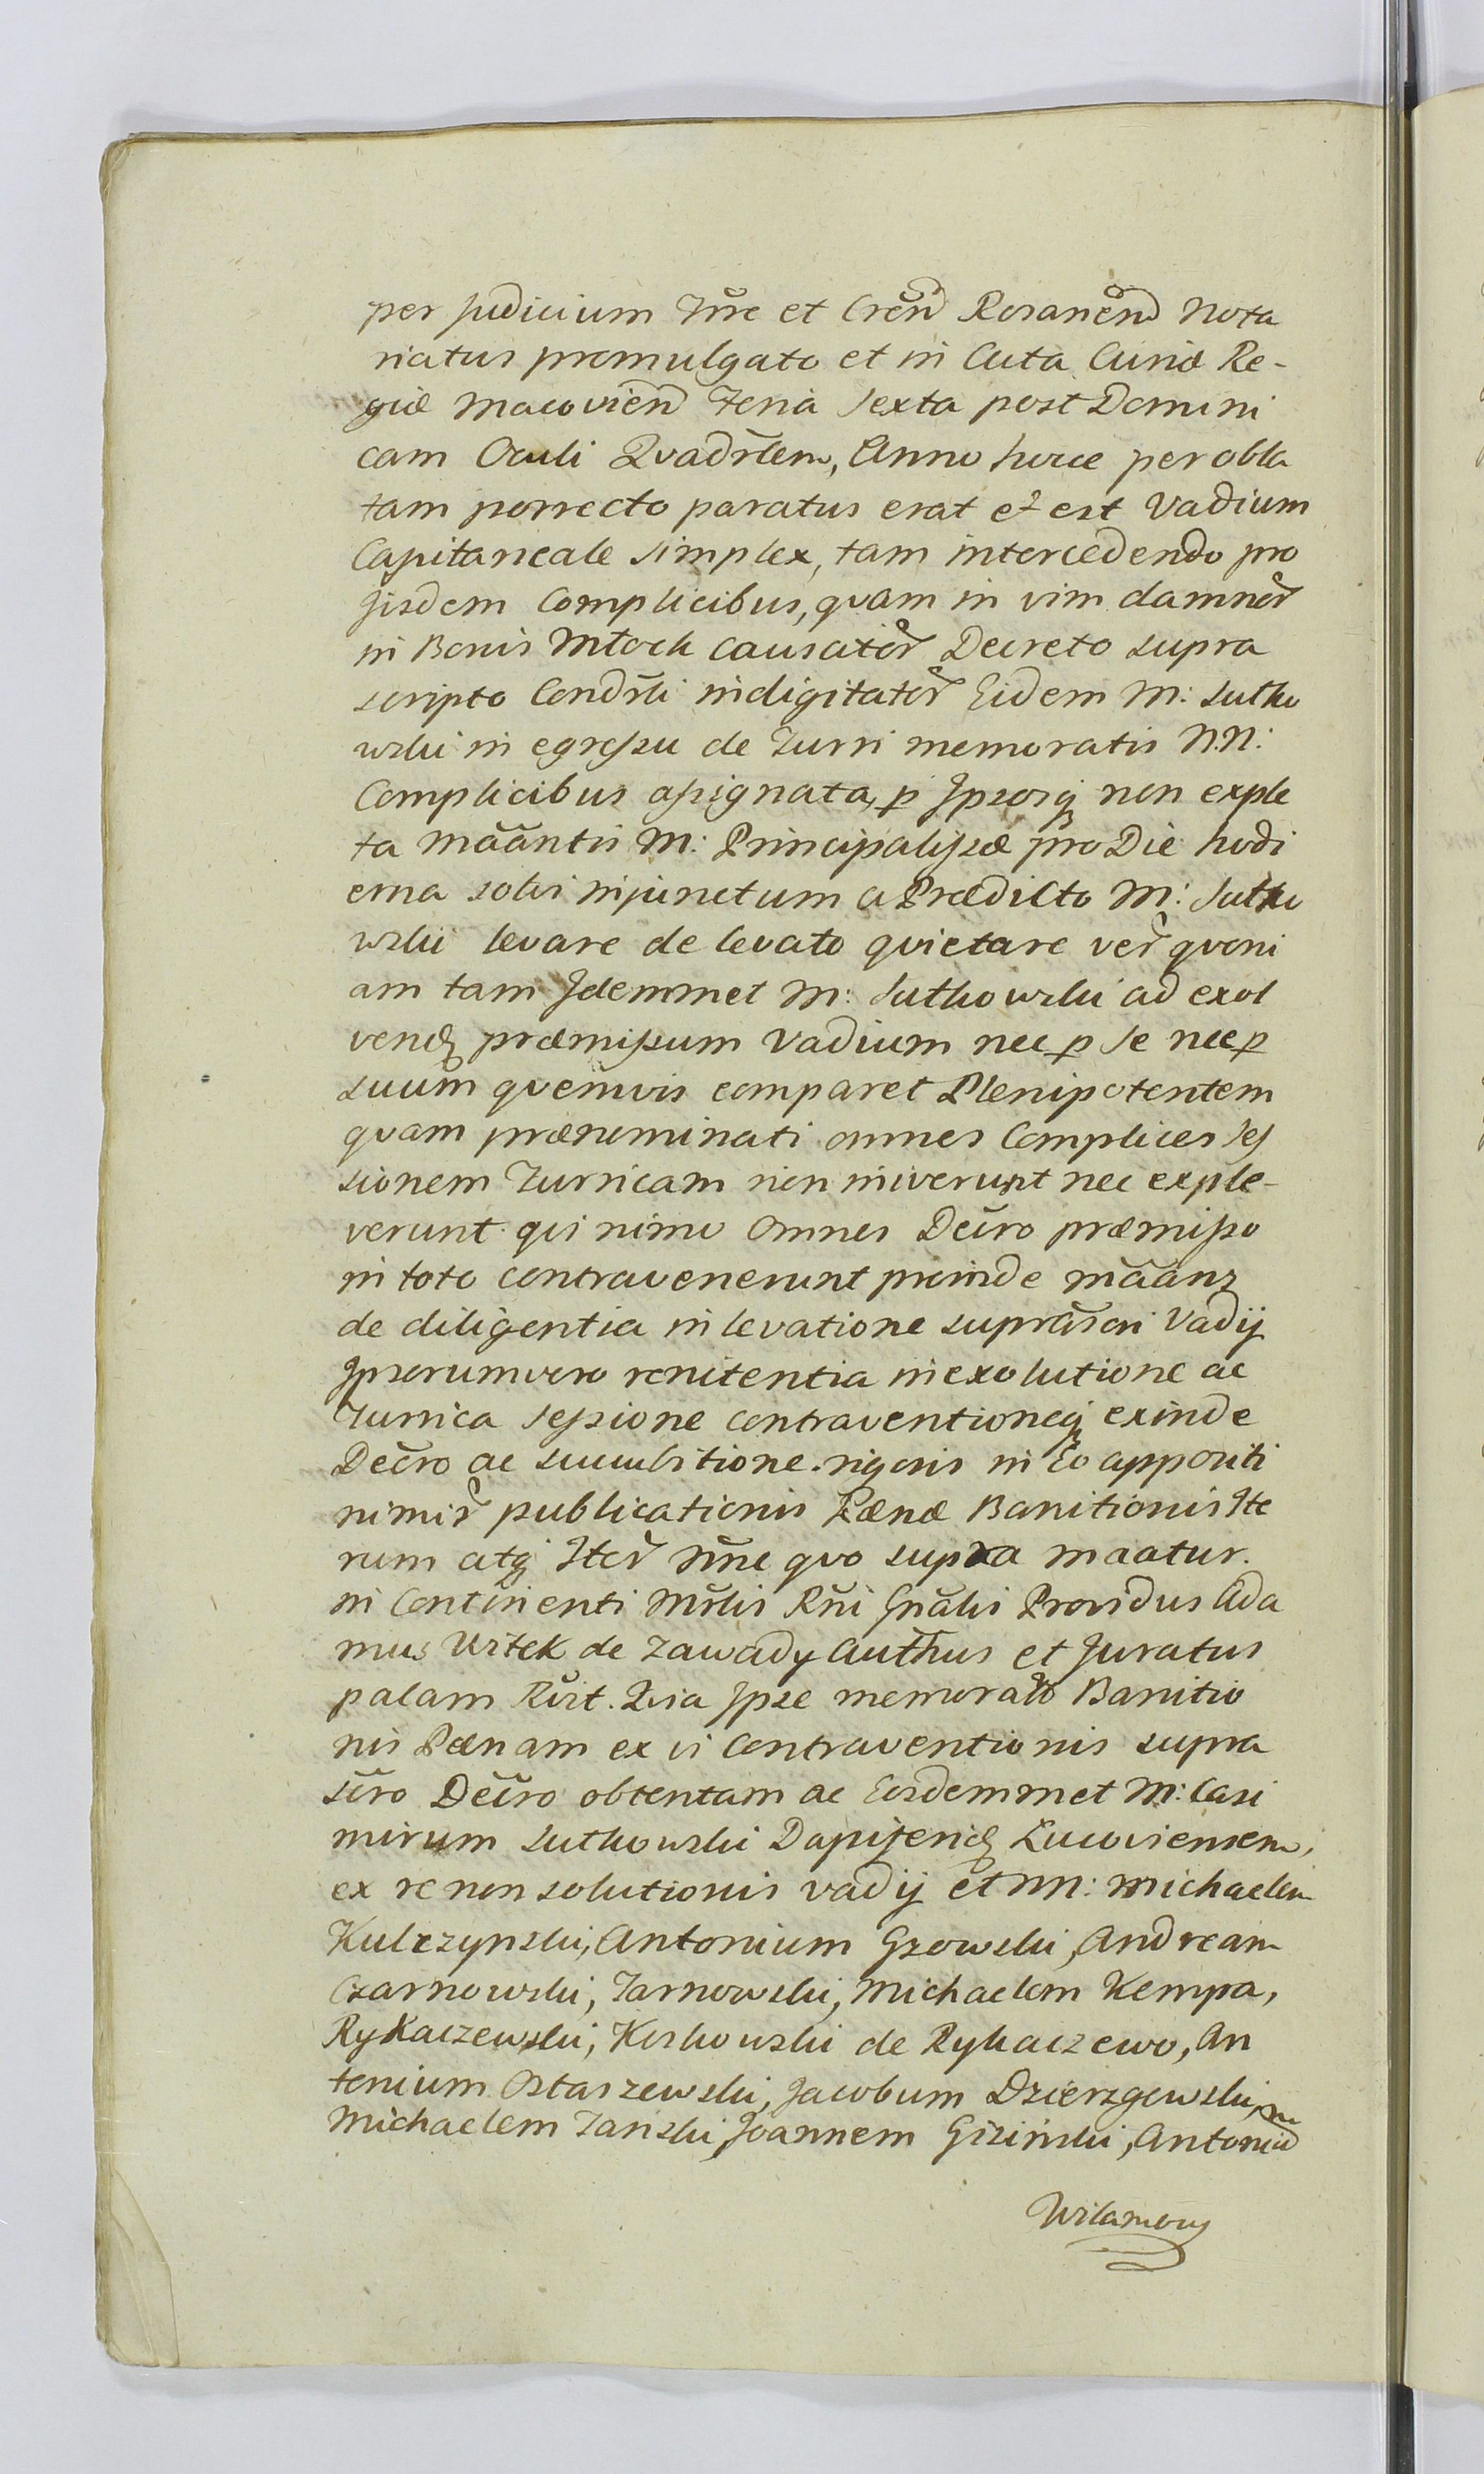 per Judicium Trre et Cren̄d Rosanen̄d Nota
riatus promulgato et in Acta Curiæ Re-
giæ Macovien̄d Feria Sexta post Domini
cam Oculi Qvadrlem, Anno hocce per obla
tam porrecto paratus erat et est Vadium
Capitaneale simplex, tam intercedendo pro
Jisdem Complicibus, qvam in vim damnor̃
in Bonis Młock causator̃ Decreto supra
scripto Condr̃li indigitator̃ Eidem M: Sutko
wski in egressu de Turri memoratis N.N:
Complicibus assignata, p Jpsosq non exple
ta māāntis M: Principalissæ pro Die hodi
erna solvi injunctum a Prædicto M: Sutko
wski levare de levato qvietare ver̃ qvoni
am tam Jdemmet M: Sutkowski ad exol
vend præmissum Vadium nec p Se nec p
suum qvemvis comparet Plenipotentem
qvam prænominati omnes Complices Ses
sionem Turricam non iniverunt nec exple-
verunt qvinimo Omnes Decro præmisso
in toto contravenerunt proinde māāns
de diligentia in levatione suprascri Vadij
Jpsorumvero renitentia in exolutione ac
Turrica Sessione contraventioneq exinde
Decro ac succubitione rigoris in Eo appositi
nimir̃ publicationis Pænæ Banitionis Ite
rum atq Iter̃ Nr̃ne qvo supra maatur.
in Continenti Mrlis Rn̄i Gnālis Providus Ada
mus Witek de Zawady Authus et Juratus
palam Rvit. Qvia Jpse memorato Banitio
nis Pænam ex vi Contraventionis supra
scro Decro obtentam ac Eosdemmet M: Casi
mirum Sutkowski Dapiferid Lucoviensem,
ex re non solutionis vadij et NN: Michaelem
Kulczynski, Antonium Gzowski, Andream
Czarnowski, Tarnowski, Michaelem Kempa,
Rykaczewski, Koskowski de Rykaczewo, An
tonium Ostaszewski, Jacobum Dzierzgowski,
Michaelem Janski, Joannem Gisinski, Antoniū